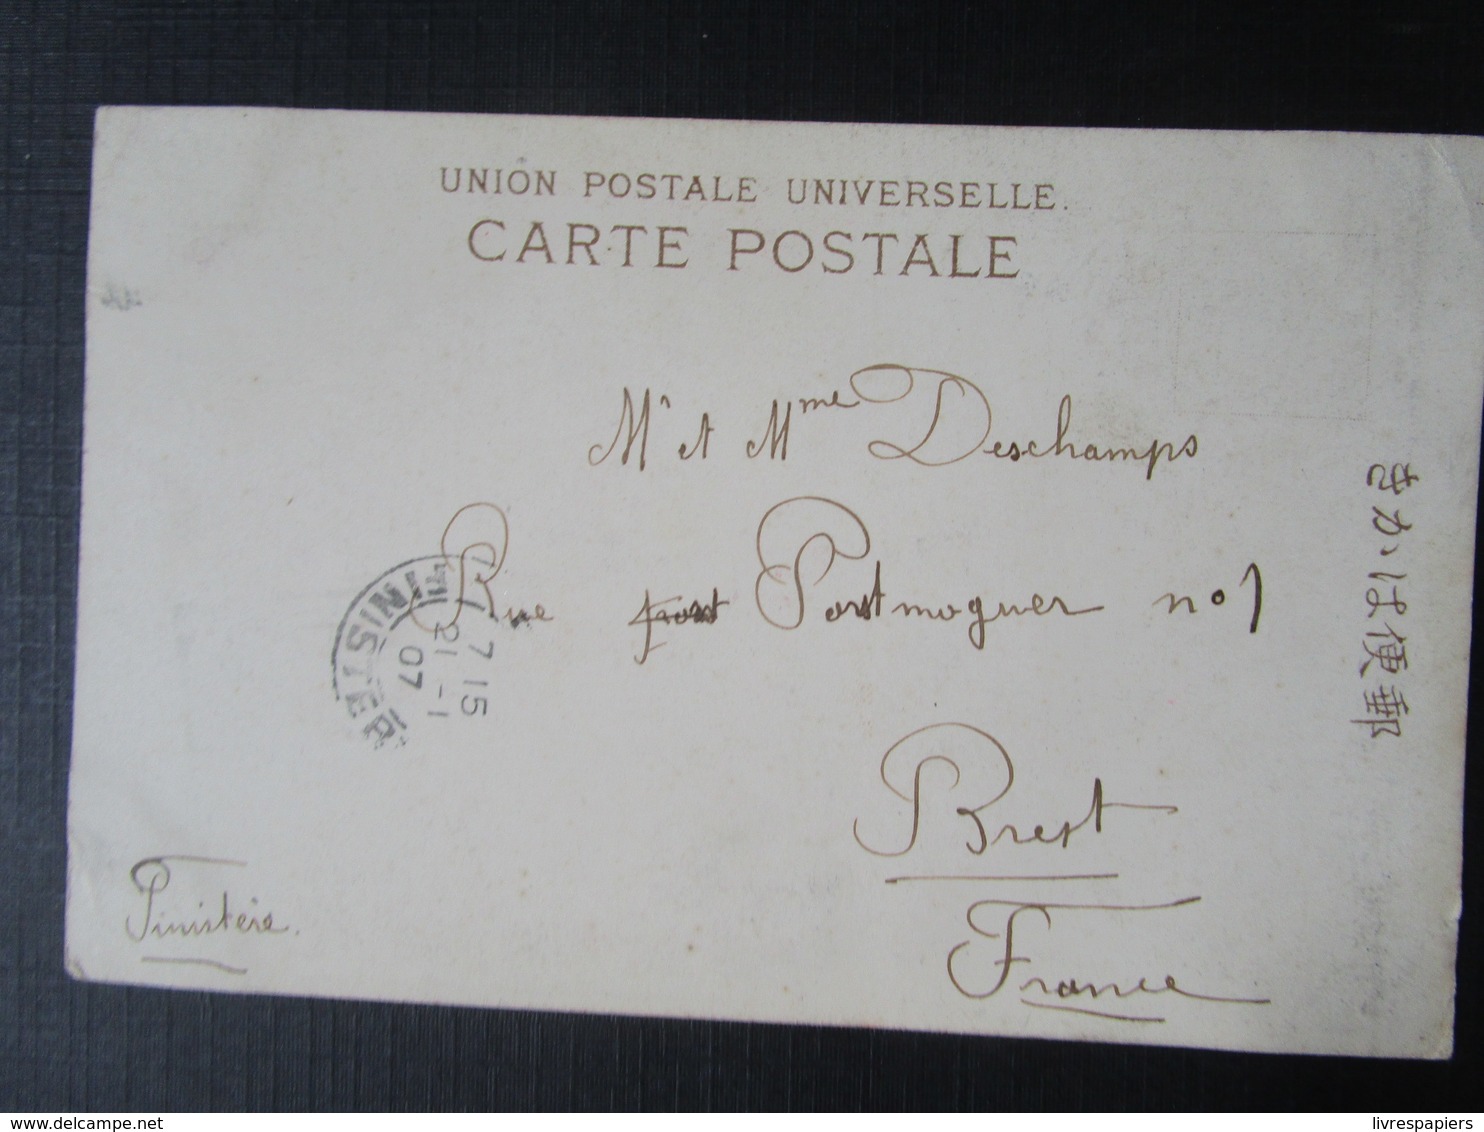 UNION POSTALE UNIVERSELLE.
CARTE POSTALE
Mr et Mme Deschamps
Rue Portmoguer no 1
Brest
France
Finistère.
きかは便郵
FINISTERE
7 15
21 - 1
07
delcampe.net
livrespapiers